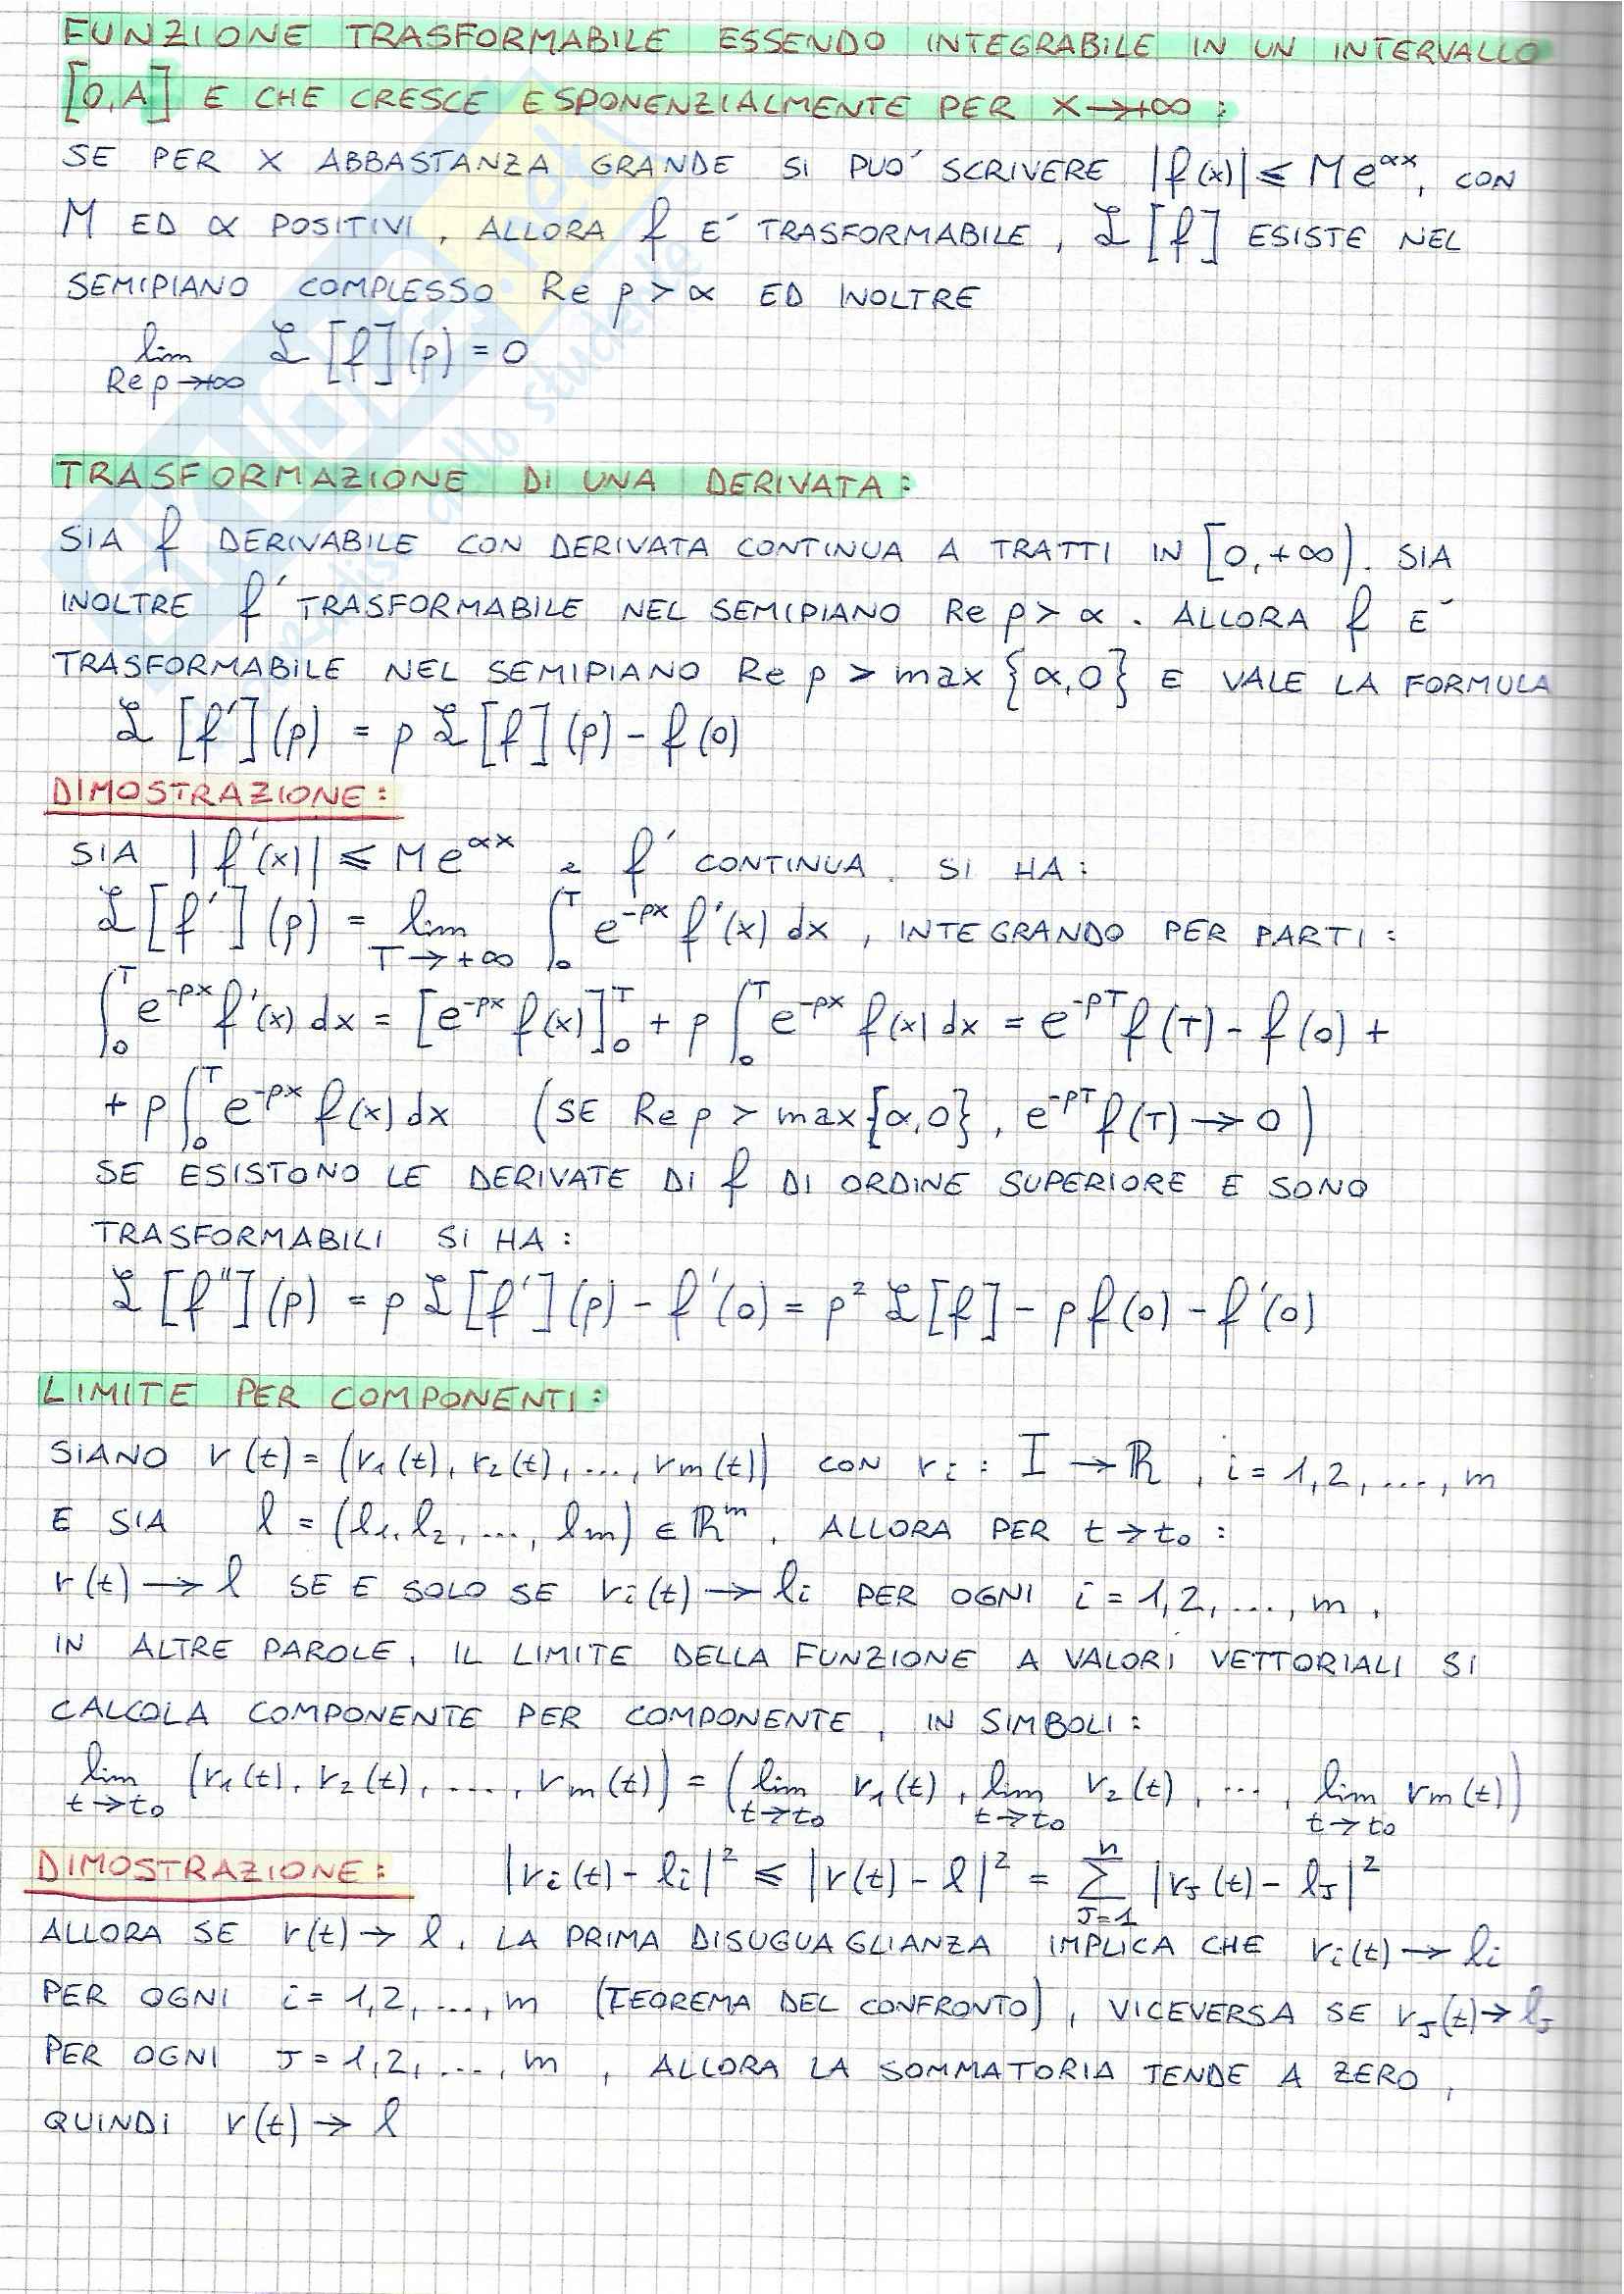 FUNZIONE TRASFORMABILE ESSENDO INTEGRABILE IN UN INTERVALLO
[0,A] E CHE CRESCE ESPONENZIALMENTE PER X→+∞:
SE PER X ABBASTANZA GRANDE SI PUO' SCRIVERE |f(x)| ≤ M e^{αx}, CON
M ED α POSITIVI, ALLORA f E' TRASFORMABILE, ℒ[f] ESISTE NEL
SEMIPIANO COMPLESSO Re p > α ED INOLTRE
lim_{Re p→+∞} ℒ[f](p) = 0
TRASFORMAZIONE DI UNA DERIVATA:
SIA f DERIVABILE CON DERIVATA CONTINUA A TRATTI IN [0,+∞). SIA
INOLTRE f' TRASFORMABILE NEL SEMIPIANO Re p > α. ALLORA f E'
TRASFORMABILE NEL SEMIPIANO Re p > max {α,0} E VALE LA FORMULA
ℒ[f'](p) = p ℒ[f](p) - f(0)
DIMOSTRAZIONE:
SIA |f'(x)| ≤ M e^{αx} e f' CONTINUA. SI HA:
ℒ[f'](p) = lim_{T→+∞} ∫_0^T e^{-px} f'(x) dx, INTEGRANDO PER PARTI:
∫_0^T e^{-px} f'(x) dx = [e^{-px} f(x)]_0^T + p ∫_0^T e^{-px} f(x) dx = e^{-pT} f(T) - f(0) +
+ p ∫_0^T e^{-px} f(x) dx (SE Re p > max{α,0}, e^{-pT} f(T) → 0)
SE ESISTONO LE DERIVATE DI f DI ORDINE SUPERIORE E SONO
TRASFORMABILI SI HA:
ℒ[f''](p) = p ℒ[f'](p) - f'(0) = p² ℒ[f] - p f(0) - f'(0)
LIMITE PER COMPONENTI:
SIANO r(t) = (r₁(t), r₂(t), ..., rm(t)) CON ri: I → ℝ, i = 1,2,...,m
E SIA l = (l₁, l₂, ..., lm) ∈ ℝ^m. ALLORA PER t→t₀:
r(t) → l SE E SOLO SE ri(t) → li PER OGNI i = 1,2,...,m.
IN ALTRE PAROLE, IL LIMITE DELLA FUNZIONE A VALORI VETTORIALI SI
CALCOLA COMPONENTE PER COMPONENTE, IN SIMBOLI:
lim_{t→t₀} (r₁(t), r₂(t), ...., rm(t)) = (lim_{t→t₀} r₁(t), lim_{t→t₀} r₂(t), ..., lim_{t→t₀} rm(t))
DIMOSTRAZIONE: |ri(t) - li|² ≤ |r(t) - l|² = ∑_{J=1}^{n} |rJ(t) - lJ|²
ALLORA SE r(t) → l, LA PRIMA DISUGUAGLIANZA IMPLICA CHE ri(t) → li
PER OGNI i = 1,2,...,m (TEOREMA DEL CONFRONTO), VICEVERSA SE rJ(t) → lJ
PER OGNI J = 1,2,...,m, ALLORA LA SOMMATORIA TENDE A ZERO,
QUINDI r(t) → l